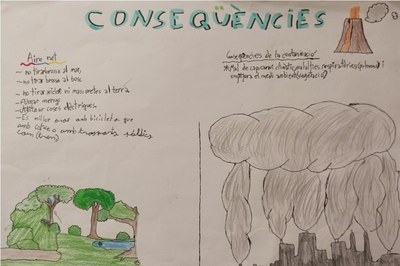 CONSEQÜÈNCIES
Aire net
- no tirar brossa al mar,
- no tirar brossa al bosc
- no tirar xiclet ni mascaretes al terra
- Fumar menys
- Utilitzar cotxes elèctriques.
- És millor anar amb bicicleta que
amb cotxe o amb transports públics
(tren)
Conseqüències de la contaminació
Mal de cap, canvi climàtic, malalties respiratòries
empitjora el medi ambient